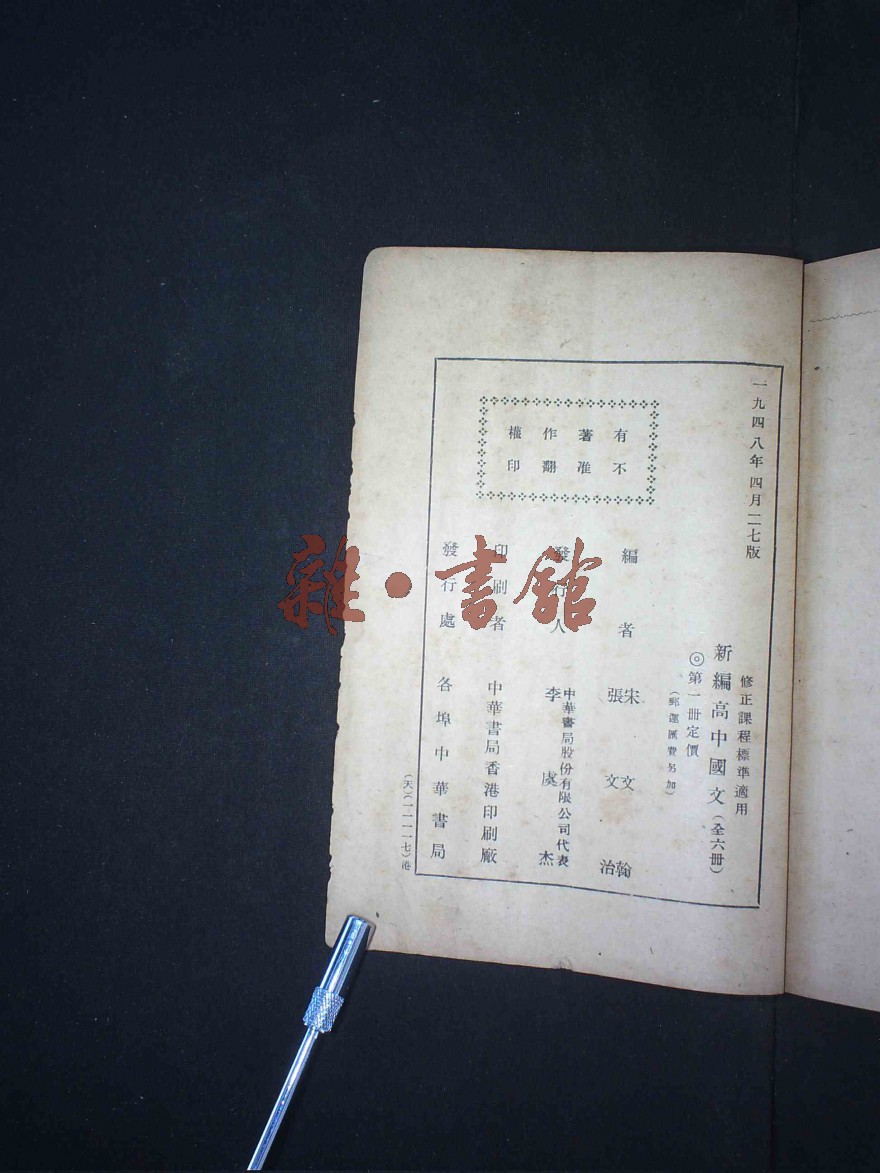 一九四八年四月二七版
修正課程標準適用
新編高中國文(全六冊)
◎第一冊定價
(郵運匯費另加)
有著作權
不准翻印
編者 宋文翰
張文治
發行人 中華書局股份有限公司代表
李虞杰
印刷者 中華書局香港印刷廠
發行處 各埠中華書局
(天)(一二一一七)港
雜·書館